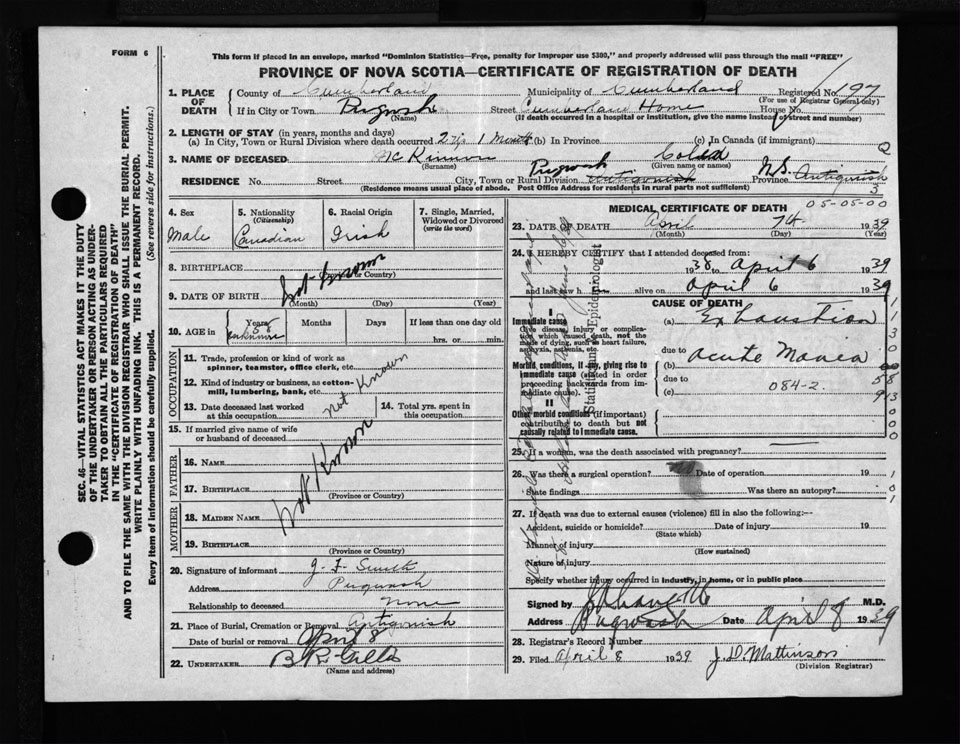 FORM 6
This form if placed in an envelope, marked "Dominion Statistics—Free, penalty for improper use $300," and properly addressed will pass through the mail "FREE"
PROVINCE OF NOVA SCOTIA—CERTIFICATE OF REGISTRATION OF DEATH
SEC. 46—VITAL STATISTICS ACT MAKES IT THE DUTY
OF THE UNDERTAKER OR PERSON ACTING AS UNDER-
TAKER TO OBTAIN ALL THE PARTICULARS REQUIRED
IN THE "CERTIFICATE OF REGISTRATION OF DEATH"
AND TO FILE THE SAME WITH THE DIVISION REGISTRAR WHO SHALL ISSUE THE BURIAL PERMIT.
WRITE PLAINLY WITH UNFADING INK. THIS IS A PERMANENT RECORD.
Every item of information should be carefully supplied. (See reverse side for instructions.)
1. PLACE OF DEATH
County of Cumberland Municipality of Cumberland Registered No. 197
(For use of Registrar General only)
If in City or Town Pugwash Street Cumberland Home House No.
(Name) (If death occurred in a hospital or institution, give the name instead of street and number)
2. LENGTH OF STAY (in years, months and days)
(a) In City, Town or Rural Division where death occurred 2 yrs 1 Month (b) In Province (c) In Canada (if immigrant)
3. NAME OF DECEASED McKinnon
(Surname) (Given name or names)
RESIDENCE No. Street City, Town or Rural Division Pugwash Antigonish Province N.S. Antigonish
(Residence means usual place of abode. Post Office Address for residents in rural parts not sufficient)
3
05-05-00
4. Sex Male
5. Nationality (Citizenship) Canadian
6. Racial Origin Irish
7. Single, Married, Widowed or Divorced (write the word)
8. BIRTHPLACE Not Known
(Province or Country)
9. DATE OF BIRTH
(Month) (Day) (Year)
10. AGE in Years 58 unknown Months Days If less than one day old
hrs. or min.
OCCUPATION
11. Trade, profession or kind of work as spinner, teamster, office clerk, etc.
12. Kind of industry or business, as cotton-mill, lumbering, bank, etc.
Not Known
13. Date deceased last worked at this occupation
14. Total yrs. spent in this occupation
15. If married give name of wife or husband of deceased
Not Known
FATHER
16. NAME
17. BIRTHPLACE
(Province or Country)
MOTHER
18. MAIDEN NAME
19. BIRTHPLACE
(Province or Country)
20. Signature of informant J. F. Smith
Address Pugwash
Relationship to deceased None
21. Place of Burial, Cremation or Removal Antigonish
Date of burial or removal April 8
22. UNDERTAKER
(Name and address)
MEDICAL CERTIFICATE OF DEATH
23. DATE OF DEATH April 7th 1939
(Month) (Day) (Year)
24. I HEREBY CERTIFY that I attended deceased from:
1938 to April 6 1939
and last saw h alive on April 6 1939
CAUSE OF DEATH
I
Immediate cause
Give disease, injury or complication which caused death, not the mode of dying, such as heart failure, asphyxia, asthenia, etc.
(a) Exhaustion
due to
Morbid conditions, if any, giving rise to immediate cause (stated in order proceeding backwards from immediate cause).
(b) Acute Mania
due to 084-2.
(c)
II
Other morbid conditions (if important) contributing to death but not causally related to immediate cause.
Statistician and Epidemiologist
25. If a woman, was the death associated with pregnancy?
26. Was there a surgical operation? Date of operation 19
State findings Was there an autopsy?
27. If death was due to external causes (violence) fill in also the following:—
Accident, suicide or homicide? Date of injury 19
(State which)
Manner of injury
(How sustained)
Nature of injury
Specify whether injury occurred in industry, in home, or in public place
Signed by M.D.
Address Pugwash Date April 8 1939
28. Registrar's Record Number
29. Filed April 8 1939 J. D. Mattinson
(Division Registrar)